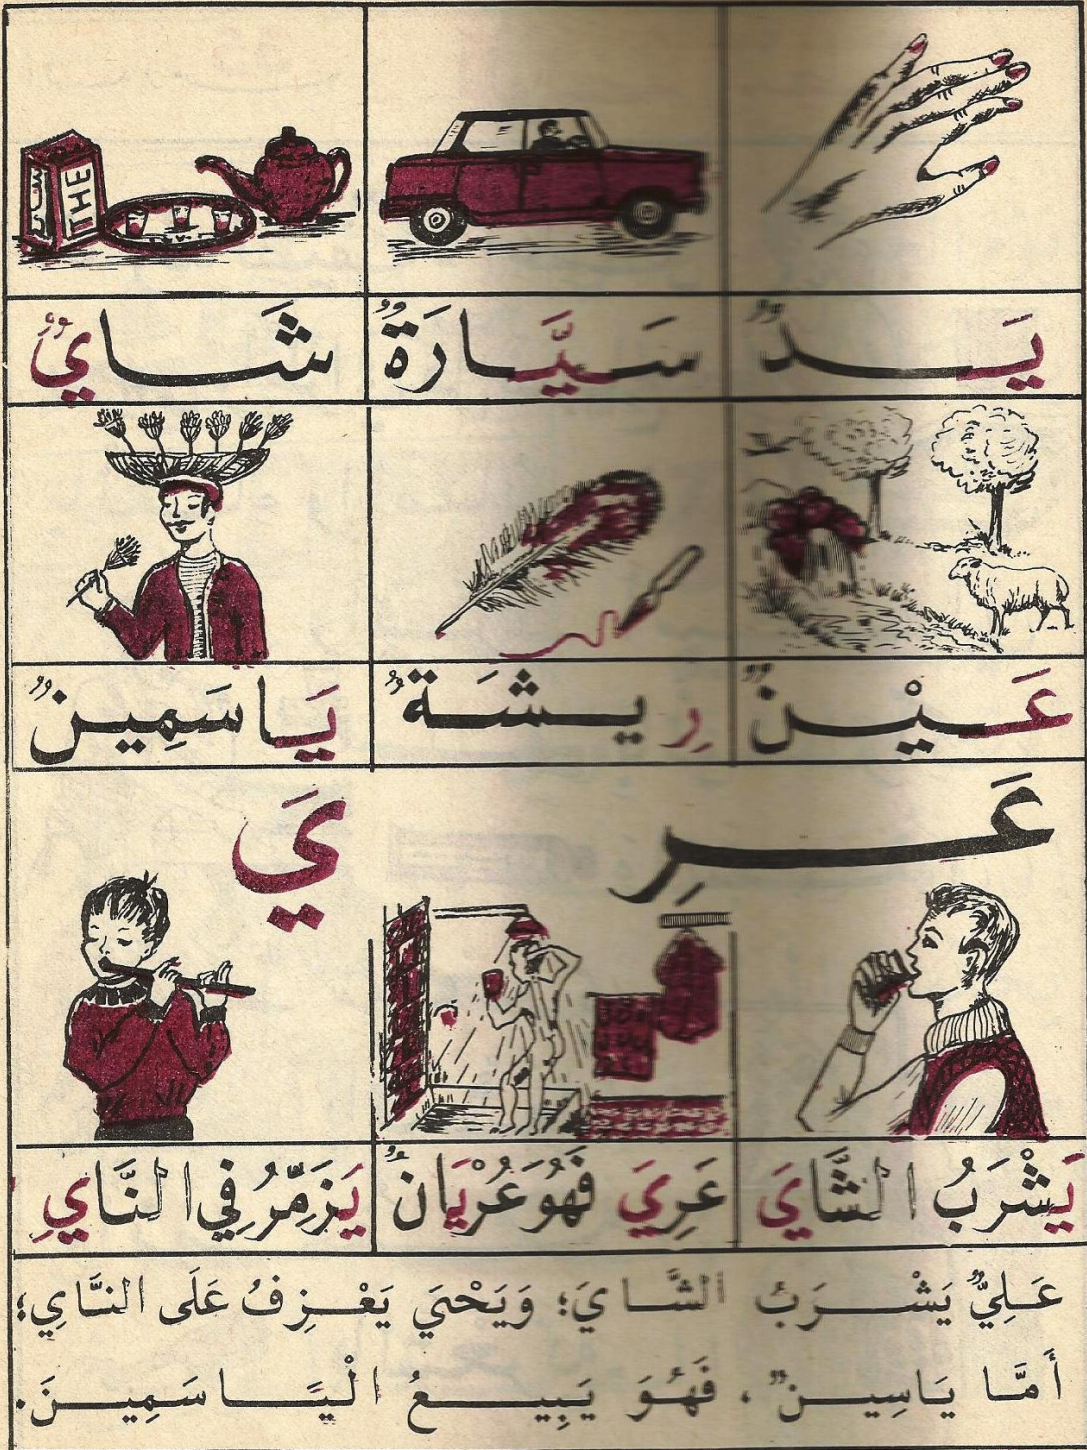 THE
يَدٌ سَيَّارَةٌ شَايٌ
عَيْنٌ رِيشَةٌ يَاسَمِينٌ
عَرِيَ
يَشْرَبُ الشَّايَ عَرِيَ فَهُوَ عُرْيَانٌ يَزَمِّرُ فِي النَّايِ
عَلِيٌّ يَشْرَبُ الشَّايَ؛ وَيَحْيَ يَعْزِفُ عَلَى النَّايِ؛
أَمَّا يَاسِينٌ، فَهُوَ يَبِيعُ الْيَاسَمِينَ.